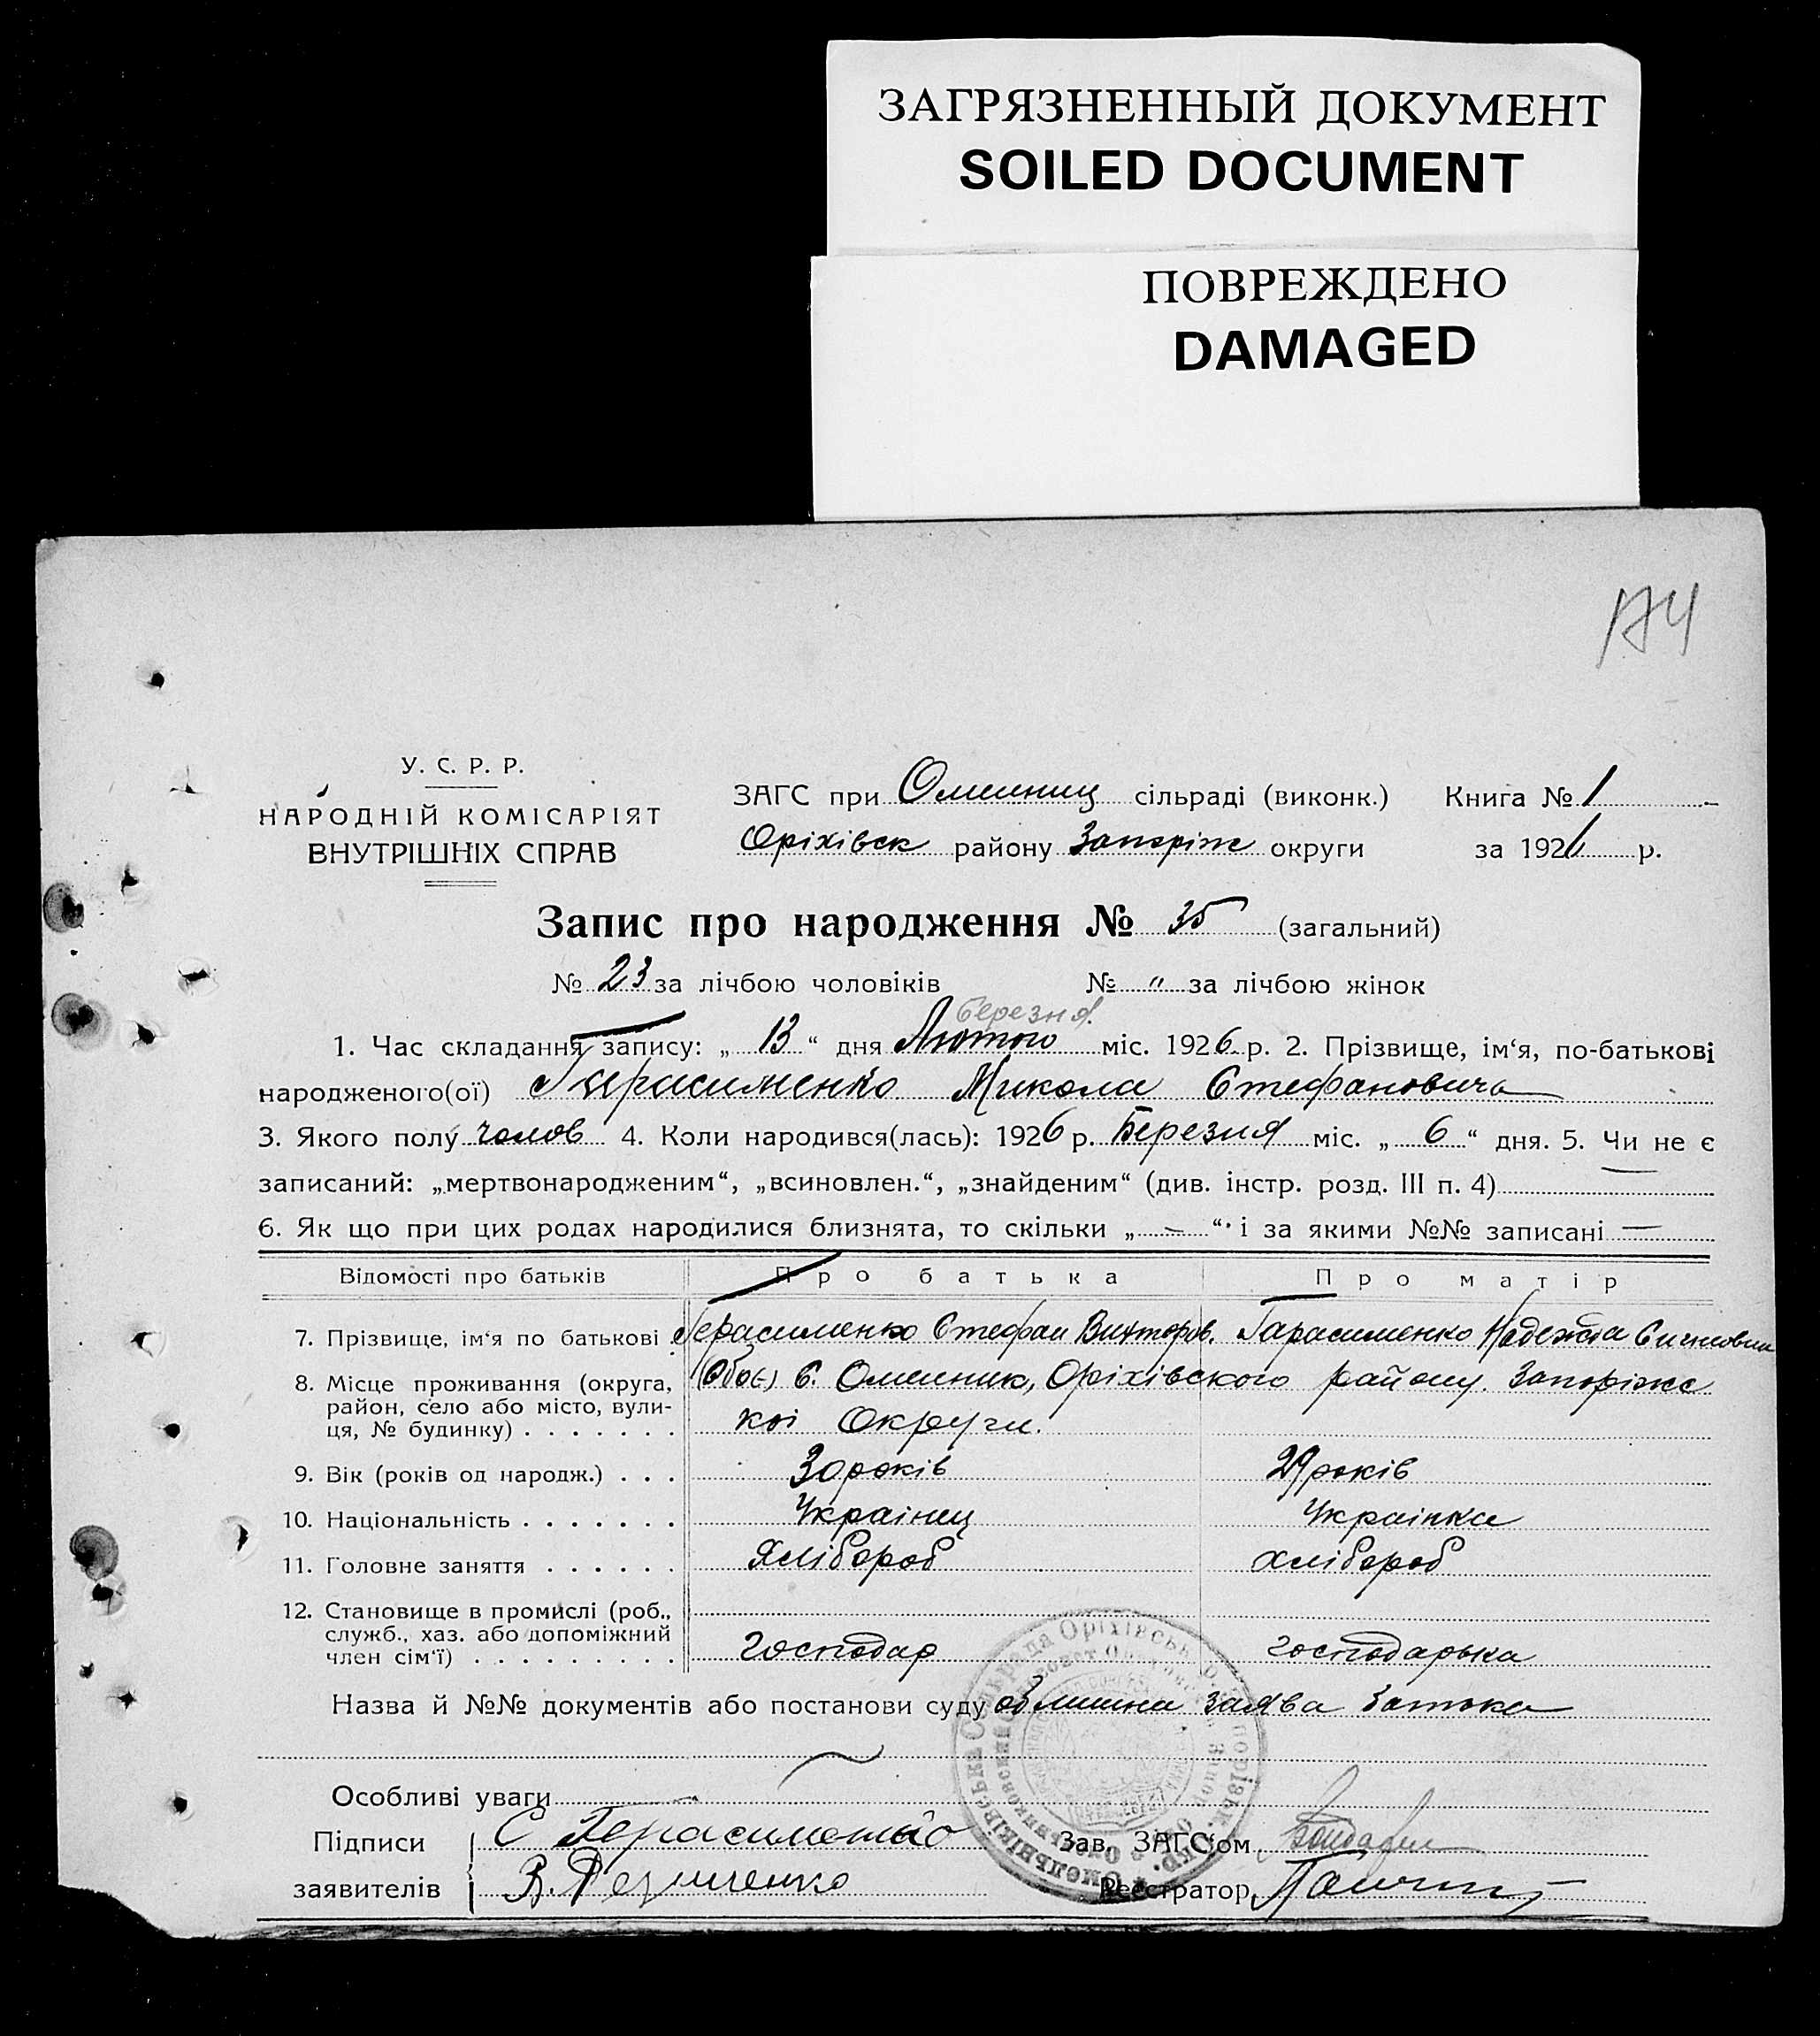 ЗАГРЯЗНЕННЫЙ ДОКУМЕНТ
SOILED DOCUMENT
ПОВРЕЖДЕНО
DAMAGED
174
У. С. Р. Р.
НАРОДНІЙ КОМІСАРІЯТ
ВНУТРІШНІХ СПРАВ
ЗАГС при сільраді (виконк.) Книга № 1
Оріхівск району Запоріж округи за 1926 р.
Запис про народження № 35 (загальний)
№ 23 за лічбою чоловіків № „ за лічбою жінок
Березня.
1. Час складання запису: „ 13 “ дня Лютого міс. 1926 р. 2. Прізвище, ім‘я, по-батькові
народженого(ої) Герасименко Микола Стефанович
3. Якого полу чолов 4. Коли народився(лась): 1926 р. Березня міс. „ 6 “ дня. 5. Чи не є
записаний: „мертвонародженим“, „всиновлен.“, „знайденим“ (див. інстр. розд. III п. 4)
6. Як що при цих родах народилися близнята, то скільки „ — “ і за якими №№ записані —
Відомості про батьків Про батька Про матір
7. Прізвище, ім‘я по батькові Герасименко Стефан Вихторов. Гарасименко Надежда
8. Місце проживання (округа, (Обоє) С. Омельник, Оріхівского району. Запоріжс
район, село або місто, вули-
ця, № будинку) . . . . . . . коі Округи.
9. Вік (років од народж.) . . . 30 років 29 років
10. Національність . . . . . . . Украінец Украінка
11. Головне заняття . . . . . . Хлібороб хлібороб
12. Становище в промислі (роб.,
служб., хаз. або допоміжний
член сім‘ї) . . . . . . . . . господар господарька
Назва й №№ документів або постанови суду заява батька
Особливі уваги
Підписи С Герасименко Зав. ЗАГС‘ом
заявителів В. Реєстратор